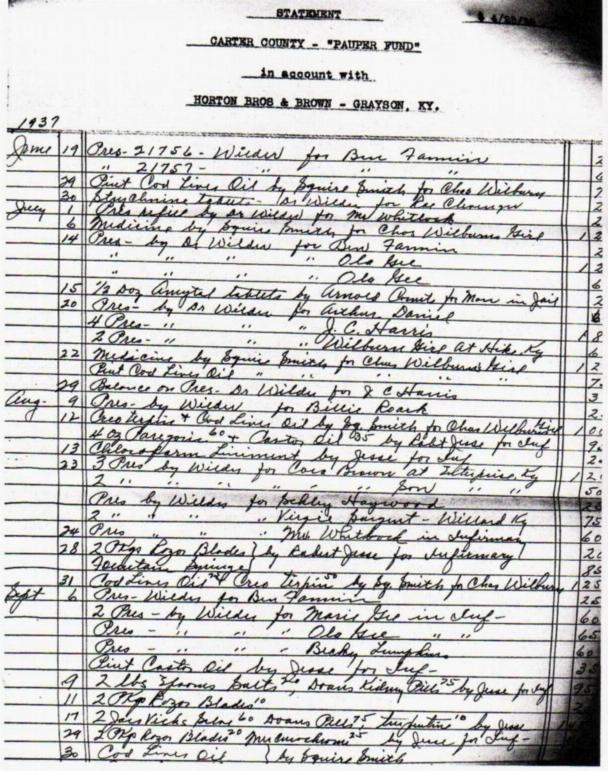 STATEMENT
CARTER COUNTY - "PAUPER FUND"
in account with
HORTON BROS & BROWN - GRAYSON, KY.
1937
June 19 Pres - 21756 - Wilder for Ben Fannin
" 21757 -
29 Pint Cod Liver Oil by Squire Smith for Chas Wilburn
30 Strychnine tablets - Dr Wilder for
July 1 Pres refill by Dr Wilder for Mr Whitlock
6 Medicine by Squire Smith for Chas Wilburns Girl
14 Pres - by Dr Wilder for Ben Fannin
" " " " Ola Gee
" " " " Ola Gee
15 1/2 Doz Amytal tablets by Arnold for Man in Jail
20 Pres - by Dr Wilder for Arthur Daniel
4 Pres - " " " J. C. Harris
2 Pres - " " " Wilburn Girl At Ky
22 Medicine by Squire Smith for Chas Wilburns Girl
Pint Cod Liver Oil " " " " "
29 Balance on Pres - Dr Wilder for J C Harris
Aug. 9 Pres - by Wilder for Billie Roark
12 Creo terpin & Cod Liver Oil by Sq Smith for Chas Wilburn Girl
4 Oz Paregoric 60 & Castor Oil 35 by Robt Jesse for Inf
13 Chloroform Liniment by Jesse for Inf
23 3 Pres by Wilder for Brown at Ky
2 " " " " Son "
Pres by Wilder for Haywood
2 " " " " Virgie Sargent - Willard Ky 75
24 Pres " " " Mrs Whitlock in Infirmary 60
28 2 Pkgs Razor Blades } by Robert Jesse for Infirmary
Fountain Syringe } 85
31 Cod Liver Oil Creo terpin by Sq. Smith for Chas Wilburn 125
Sept 6 Pres - Wilder for Ben Fannin 25
2 Pres - by Wilder for Marie Gee in Inf - 60
Pres - " " " Ola Gee " " 65
Pres - " " " Becky Lumpkins 60
Pint Castor Oil by Jesse for Inf - 35
9 2 lbs Epsoms Salts 20, Doans Kidney Pills 75 by Jesse for Inf 95
11 2 Pkg Razor Blades 10
17 2 Jars Vicks Salve 60 Doans Pills 75, turpentine 10 by Jesse
29 2 Pkg Razor Blades 20 Mercurochrome 25 by Jesse for Inf -
30 Cod Liver Oil } by Squire Smith